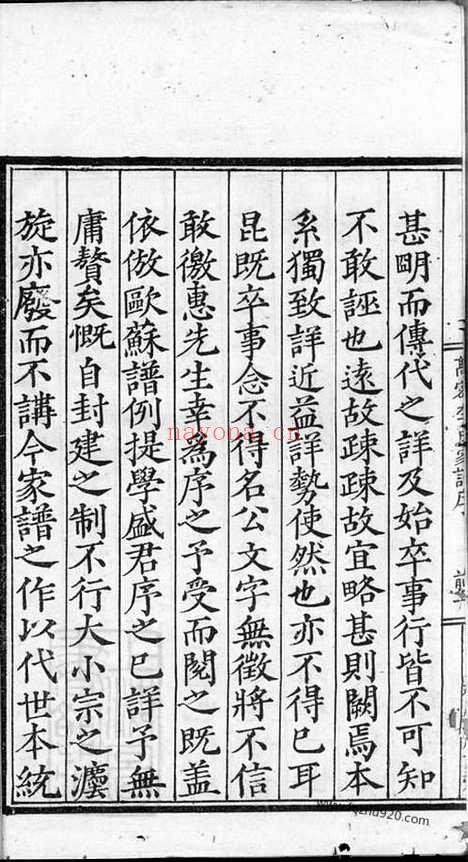 甚明而傳代之詳及始卒事行皆不可知
不敢誣也遠故疎疎故宜略甚則闕焉本
系獨致詳近益詳勢使然也亦不得已耳
昆既卒事念不得名公文字無徵將不信
敢徼惠先生幸為序之予受而閱之既盖
依倣歐蘇譜例提學盛君序之已詳予無
庸贅矣慨自封建之制不行大小宗之灋
旋亦廢而不講今家譜之作以代世本統
nayona.cn